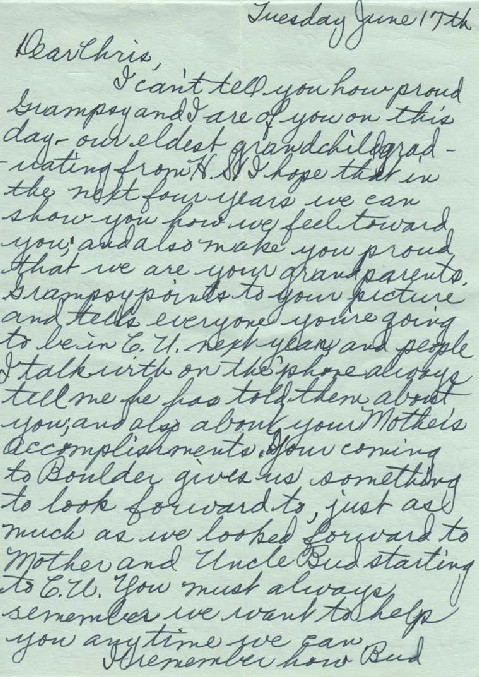 Tuesday June 17th
Dear Chris,
I can't tell you how proud
Grampsy and I are of you on this
day - our eldest grandchild grad -
- uating from H.S. I hope that in
the next four years we can
show you how we feel toward
you; and also make you proud
that we are your grandparents.
Grampsy points to your picture
and tells everyone you're going
to be in C.U. next year, and people
I talk with on the 'phone always
tell me he has told them about
you; and also about your Mother's
accomplishments. Your coming
to Boulder gives us something
to look forward to, just as
much as we looked forward to
Mother and Uncle Bud starting
to C.U. You must always
remember we want to help
you anytime we can.
I remember how Bud